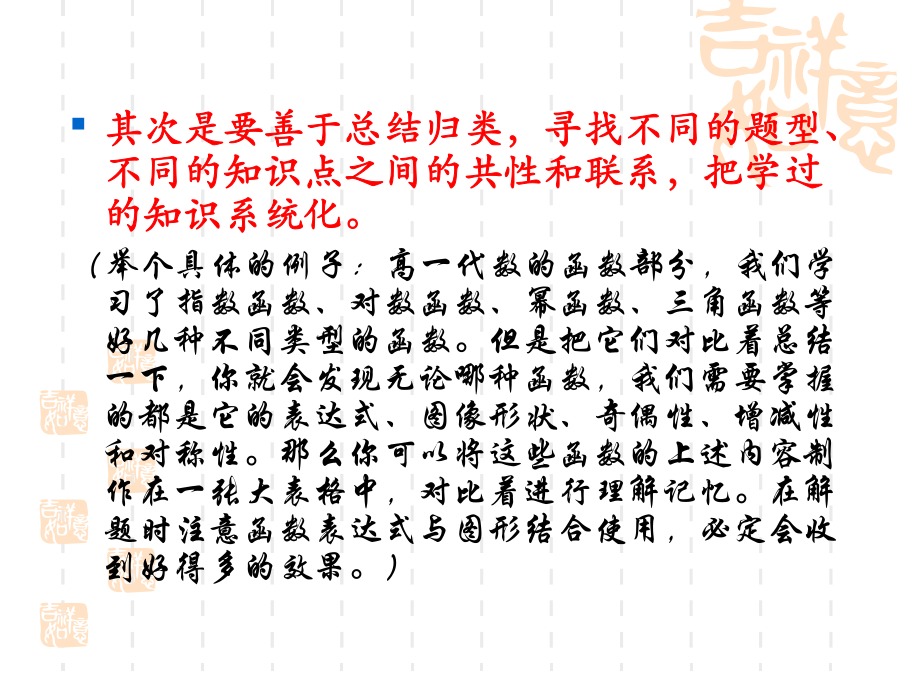 吉祥如意
其次是要善于总结归类，寻找不同的题型、
不同的知识点之间的共性和联系，把学过
的知识系统化。
（举个具体的例子：高一代数的函数部分，我们学
习了指数函数、对数函数、幂函数、三角函数等
好几种不同类型的函数。但是把它们对比着总结
一下，你就会发现无论哪种函数，我们需要掌握
的都是它的表达式、图像形状、奇偶性、增减性
和对称性。那么你可以将这些函数的上述内容制
作在一张大表格中，对比着进行理解记忆。在解
题时注意函数表达式与图形结合使用，必定会收
到好得多的效果。）
吉祥如意
吉祥如意
吉祥如意